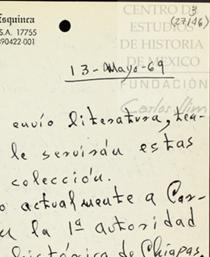 Esquinca
S.A. 17755
890422-001
CENTRO DE
ESTUDIOS
DE HISTORIA
DE MÉXICO
FUNDACIÓN
Carlos Slim
3
(27/46)
13-Mayo-69
envío literatura,
le servirán estas
colección.
actualmente a Car-
la 1ª autoridad
histórica de Chiapas,